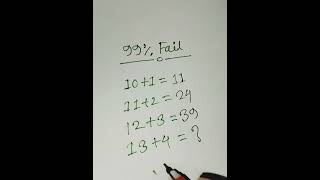 99% Fail
10+1=11
11+2=24
12+3=39
13+4=?